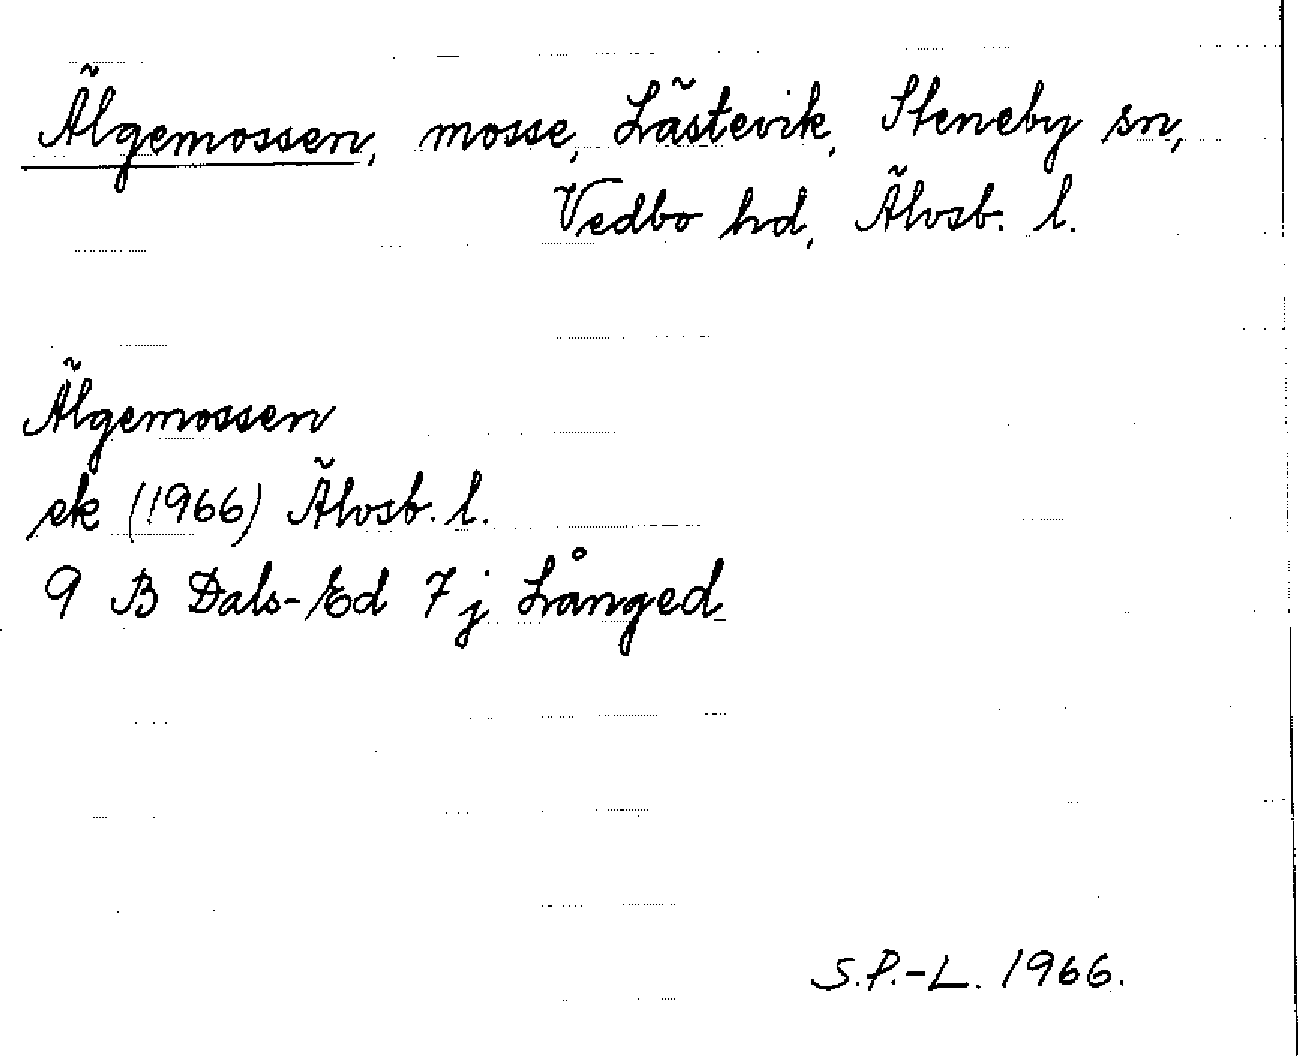 Älgemossen, mosse, Lästevik, Steneby sn,
Vedbo hd, Älvsb. l.
Älgemossen
ek (1966) Älvsb. l.
9 B Dals-Ed 7 j Långed
S.P.-L. 1966.